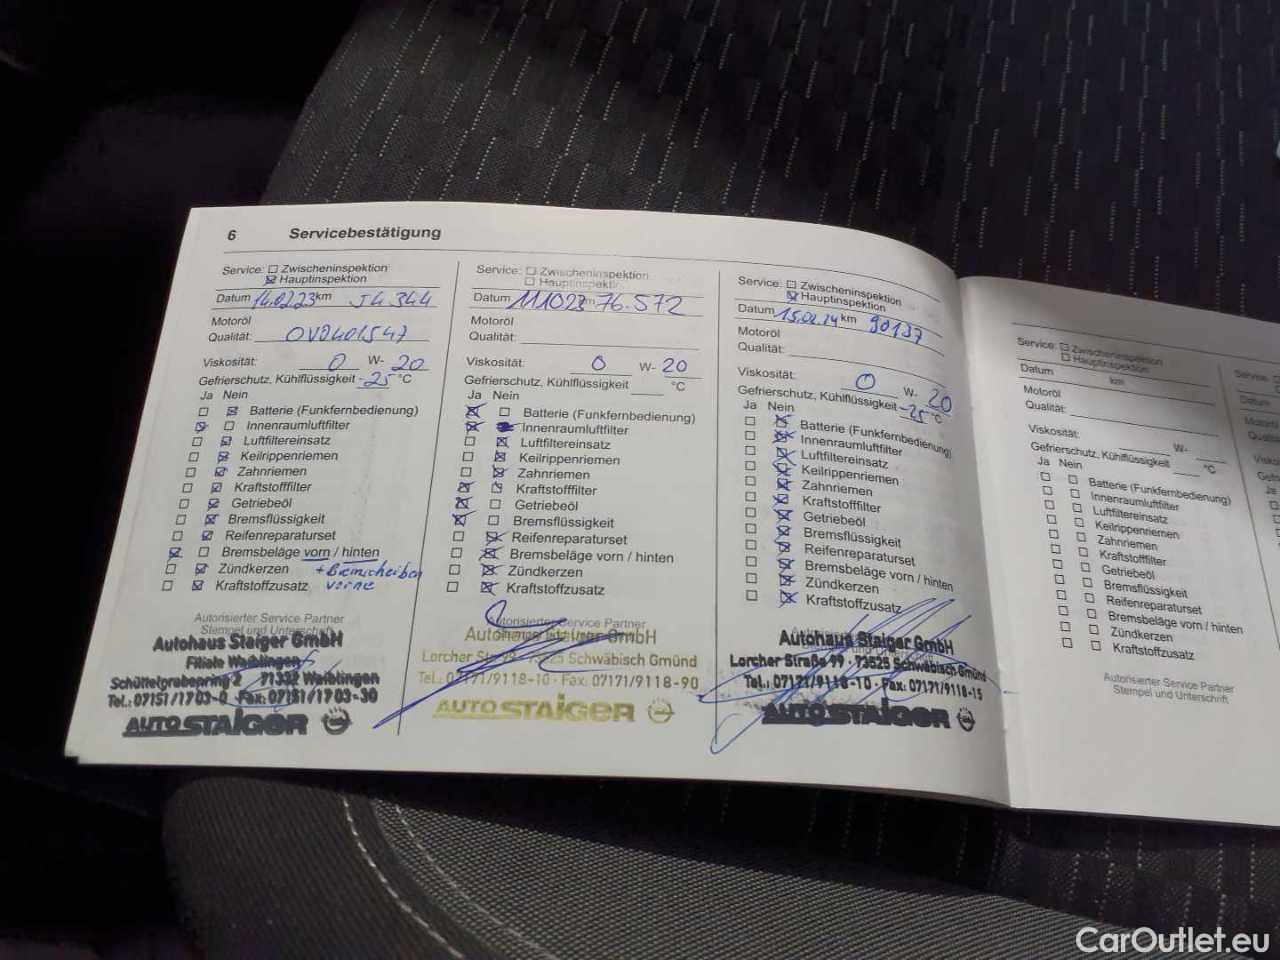 6 Servicebestätigung
Service: Zwischeninspektion
Hauptinspektion
Datum 14.02.23 km 54.344
Motoröl
Qualität: OV0401547
Viskosität: 0 W- 20
Gefrierschutz, Kühlflüssigkeit -25 °C
Ja Nein
Batterie (Funkfernbedienung)
Innenraumluftfilter
Luftfiltereinsatz
Keilrippenriemen
Zahnriemen
Kraftstofffilter
Getriebeöl
Bremsflüssigkeit
Reifenreparaturset
Bremsbeläge vorn / hinten
Zündkerzen + Bremscheiben
Kraftstoffzusatz vorne
Autorisierter Service Partner
Stempel und Unterschrift
Autohaus Staiger GmbH
Filiale Waiblingen
Schüttelgrabenring 2 71332 Waiblingen
Tel.: 07151/1703-0 Fax: 07151/1703-30
AUTO STAIGER
Service: Zwischeninspektion
Hauptinspektion
Datum 111023 km 76.572
Motoröl
Qualität:
Viskosität: 0 W- 20
Gefrierschutz, Kühlflüssigkeit °C
Ja Nein
Batterie (Funkfernbedienung)
Innenraumluftfilter
Luftfiltereinsatz
Keilrippenriemen
Zahnriemen
Kraftstofffilter
Getriebeöl
Bremsflüssigkeit
Reifenreparaturset
Bremsbeläge vorn / hinten
Zündkerzen
Kraftstoffzusatz
Autorisierter Service Partner
Autohaus Staiger GmbH
Lorcher Str. 99 · 73525 Schwäbisch Gmünd
Tel.: 07171/9118-10 · Fax: 07171/9118-90
AUTO STAIGER
Service: Zwischeninspektion
Hauptinspektion
Datum 15.02.24 km 90137
Motoröl
Qualität:
Viskosität: 0 W- 20
Gefrierschutz, Kühlflüssigkeit -25 °C
Ja Nein
Batterie (Funkfernbedienung)
Innenraumluftfilter
Luftfiltereinsatz
Keilrippenriemen
Zahnriemen
Kraftstofffilter
Getriebeöl
Bremsflüssigkeit
Reifenreparaturset
Bremsbeläge vorn / hinten
Zündkerzen
Kraftstoffzusatz
Autohaus Staiger GmbH
Lorcher Straße 99 · 73525 Schwäbisch Gmünd
Tel.: 07171/9118-10 · Fax: 07171/9118-15
AUTO STAIGER
Service: Zwischeninspektion
Hauptinspektion
Datum km
Motoröl
Qualität:
Viskosität: W-
Gefrierschutz, Kühlflüssigkeit °C
Ja Nein
Batterie (Funkfernbedienung)
Innenraumluftfilter
Luftfiltereinsatz
Keilrippenriemen
Zahnriemen
Kraftstofffilter
Getriebeöl
Bremsflüssigkeit
Reifenreparaturset
Bremsbeläge vorn / hinten
Zündkerzen
Kraftstoffzusatz
Autorisierter Service Partner
Stempel und Unterschrift
Service:
Datum
CarOutlet.eu